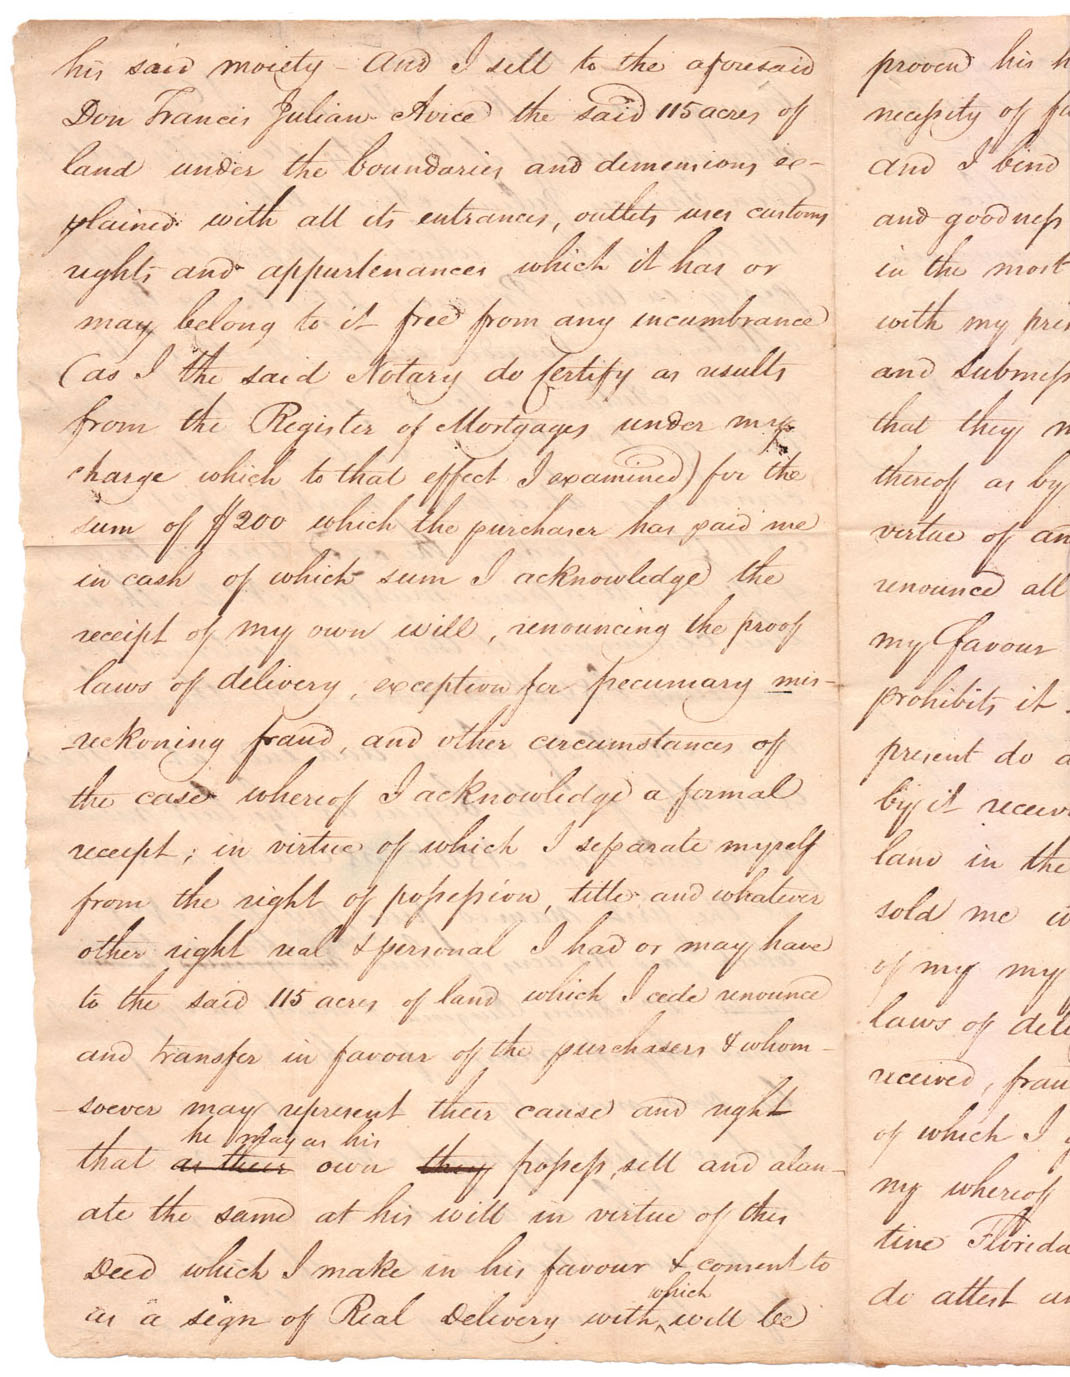 his said moiety - And I sell to the aforesaid
Don Francis Julian Avice the said 115 acres of
land under the boundaries and dimensions ex-
plained with all its entrances, outlets uses customs
rights and appurtenances which it has or
may belong to it free from any incumbrance
(as I the said Notary do Certify as results
from the Register of Mortgages under my
charge which to that effect I examined) for the
sum of $200 which the purchaser has paid me
in cash of which sum I acknowledge the
receipt of my own will, renouncing the proof
laws of delivery, exception for pecuniary mis-
-reckoning fraud, and other circumstances of
the case whereof I acknowledge a formal
receipt; in virtue of which I separate myself
from the right of possession, title, and whatever
other right real & personal I had or may have
to the said 115 acres of land which I cede renounce
and transfer in favour of the purchasers & whom-
-soever may represent their cause and right
he may as his
that as their own they possess, sell and alan-
ate the same at his will in virtue of this
Deed which I make in his favour & consent to
which
as a sign of Real Delivery with, will be
proven his h
necessity of fu
And I bind
and goodness
in the most
with my pri
and submiss
that they m
thereof as by
virtue of an
renounced all
my favour
prohibits it -
present do a
by it receiv
land in the
sold me
of my my
laws of deli
received, frau
of which I g
my whereof
tine Florida
do attest an